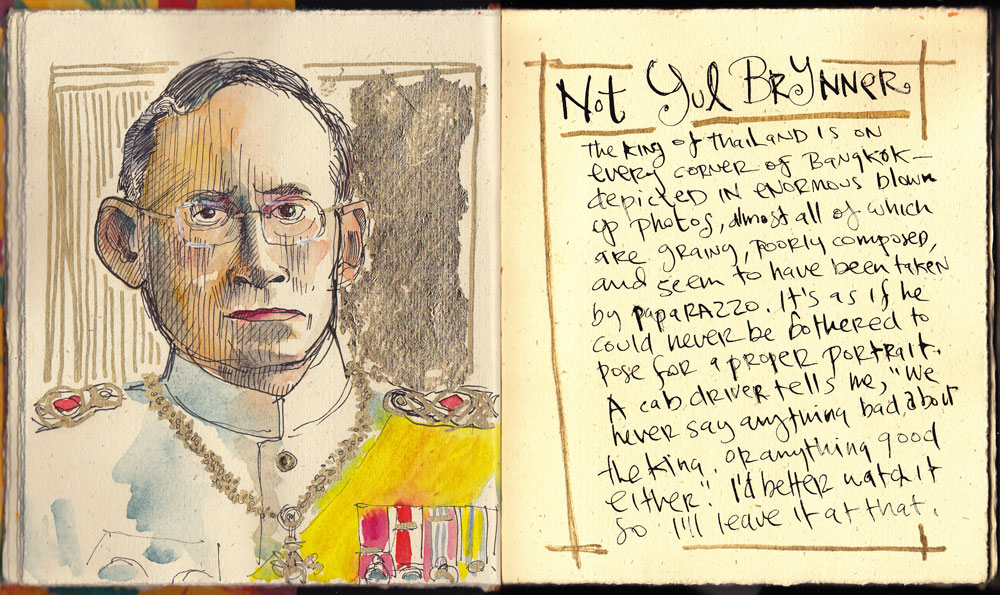 Not Yul BRYNNER
The KING of Thailand IS ON
every corner of Bangkok—
depicted IN enormous blown
up photos, almost all of which
are grainy, poorly composed,
and seem to have been taken
by papaRAZZO. It's as if he
could never be bothered to
pose for a proper portrait.
A cab driver tells me, "We
never say anything bad about
the king. or anything good
either." I'd better watch it
so I'll leave it at that.